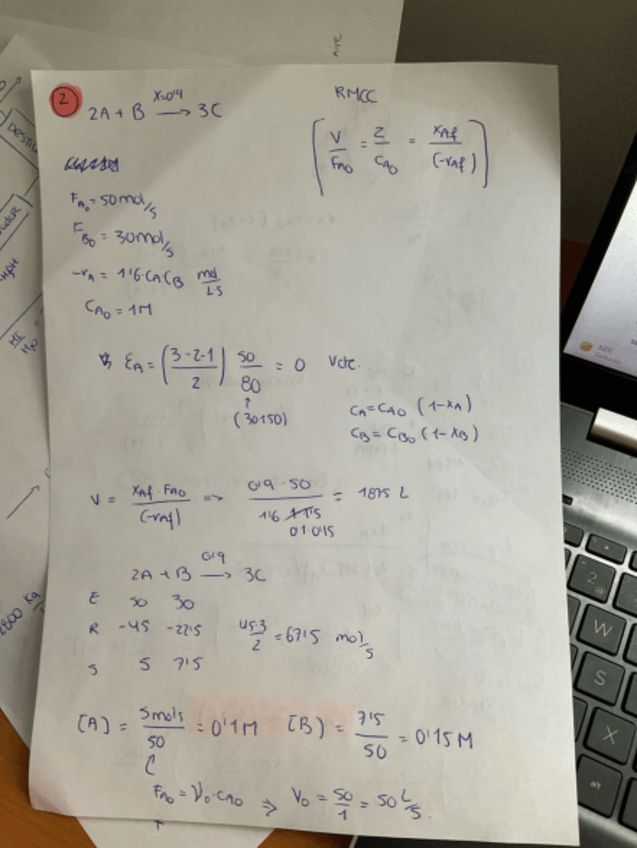 2
2A + B X=0'9 → 3C
RMCC
( V/FA0 = Z/CA0 = XAf/(-rAf) )
FA0 = 50 mol/s
FB0 = 30 mol/s
-rA = 1'6·CACB mol/LS
CA0 = 1M
εA = (3-2-1/2) 50/80 = 0 Vcte.
(30+50)
CA = CA0 (1-XA)
CB = CB0 (1-XB)
V = XAf·FA0/(-rAf) => 0'9·50/1'6 0'1 0'15 = 1875 L
2A + B 0'9 → 3C
E 50 30
R -45 -22'5 45·3/2 = 67'5 mol/s
S 5 7'5
[A] = 5mols/50 = 0'1M [B] = 7'5/50 = 0'15M
FA0 = V0·CA0 => V0 = 50/1 = 50 L/s.
DESTIL
2800 Kg
H2O
2
W
S
X